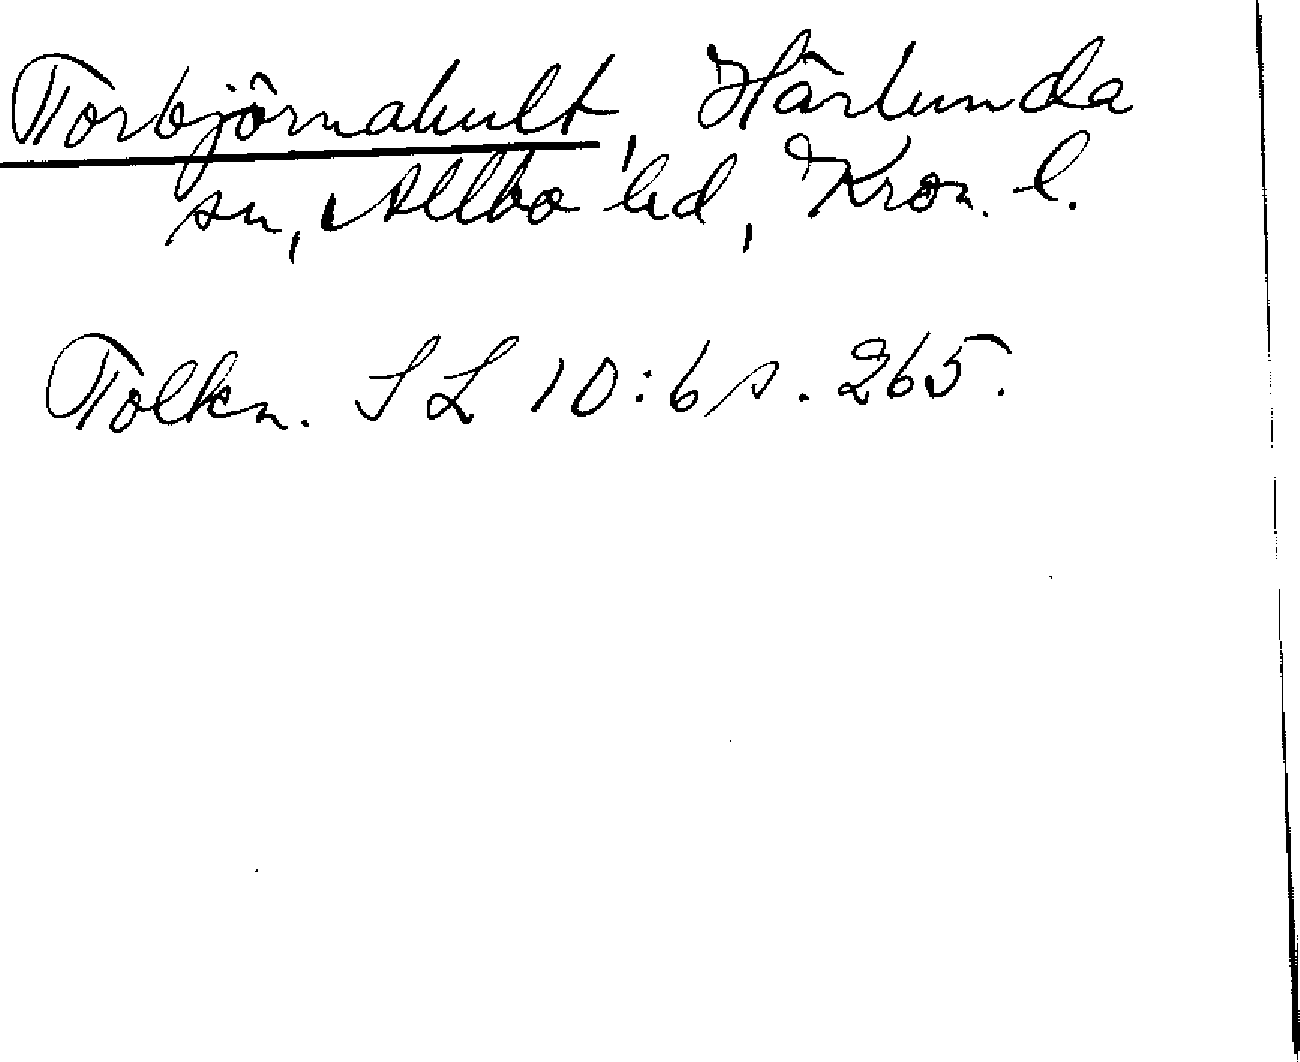 Torbjörnahult, Härlunda
sn, Allbo hd, Kron. l.
Tolkn. SL 10:6 s. 265.